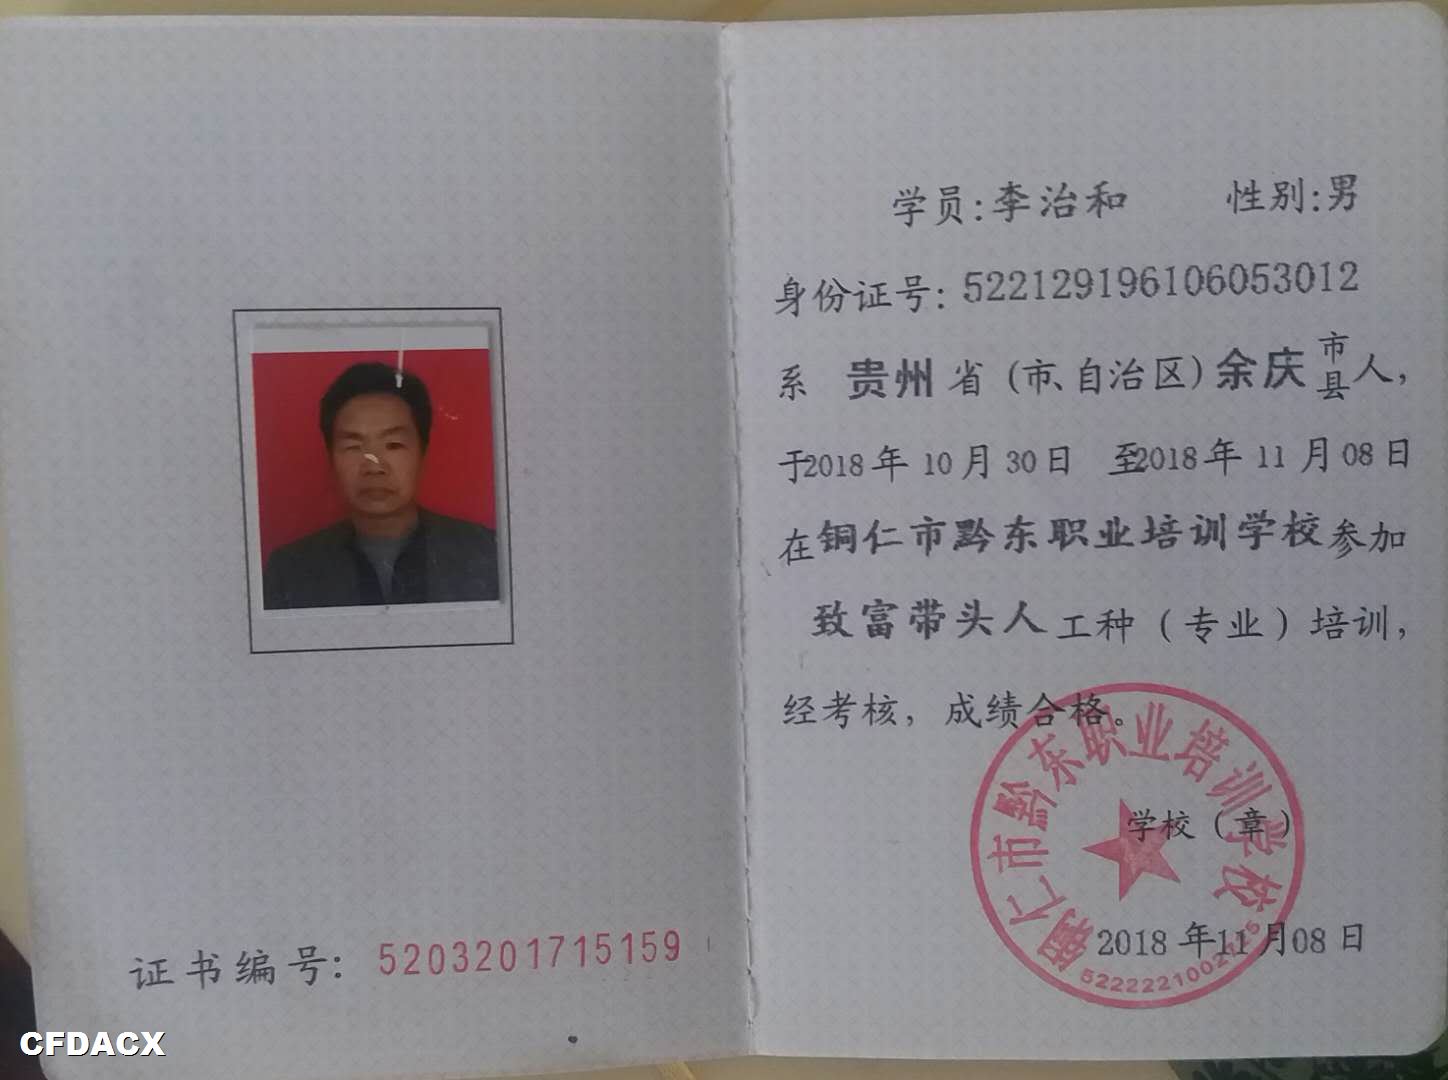 证书编号：5203201715159
CFDACX
学员：李治和 性别：男
身份证号：522129196106053012
系 贵州 省（市、自治区）余庆 市县 人，
于2018年10月30日 至2018年11月08日
在铜仁市黔东职业培训学校参加
致富带头人工种（专业）培训，
经考核，成绩合格。
学校（章）
2018年11月08日
铜仁市黔东职业培训学校